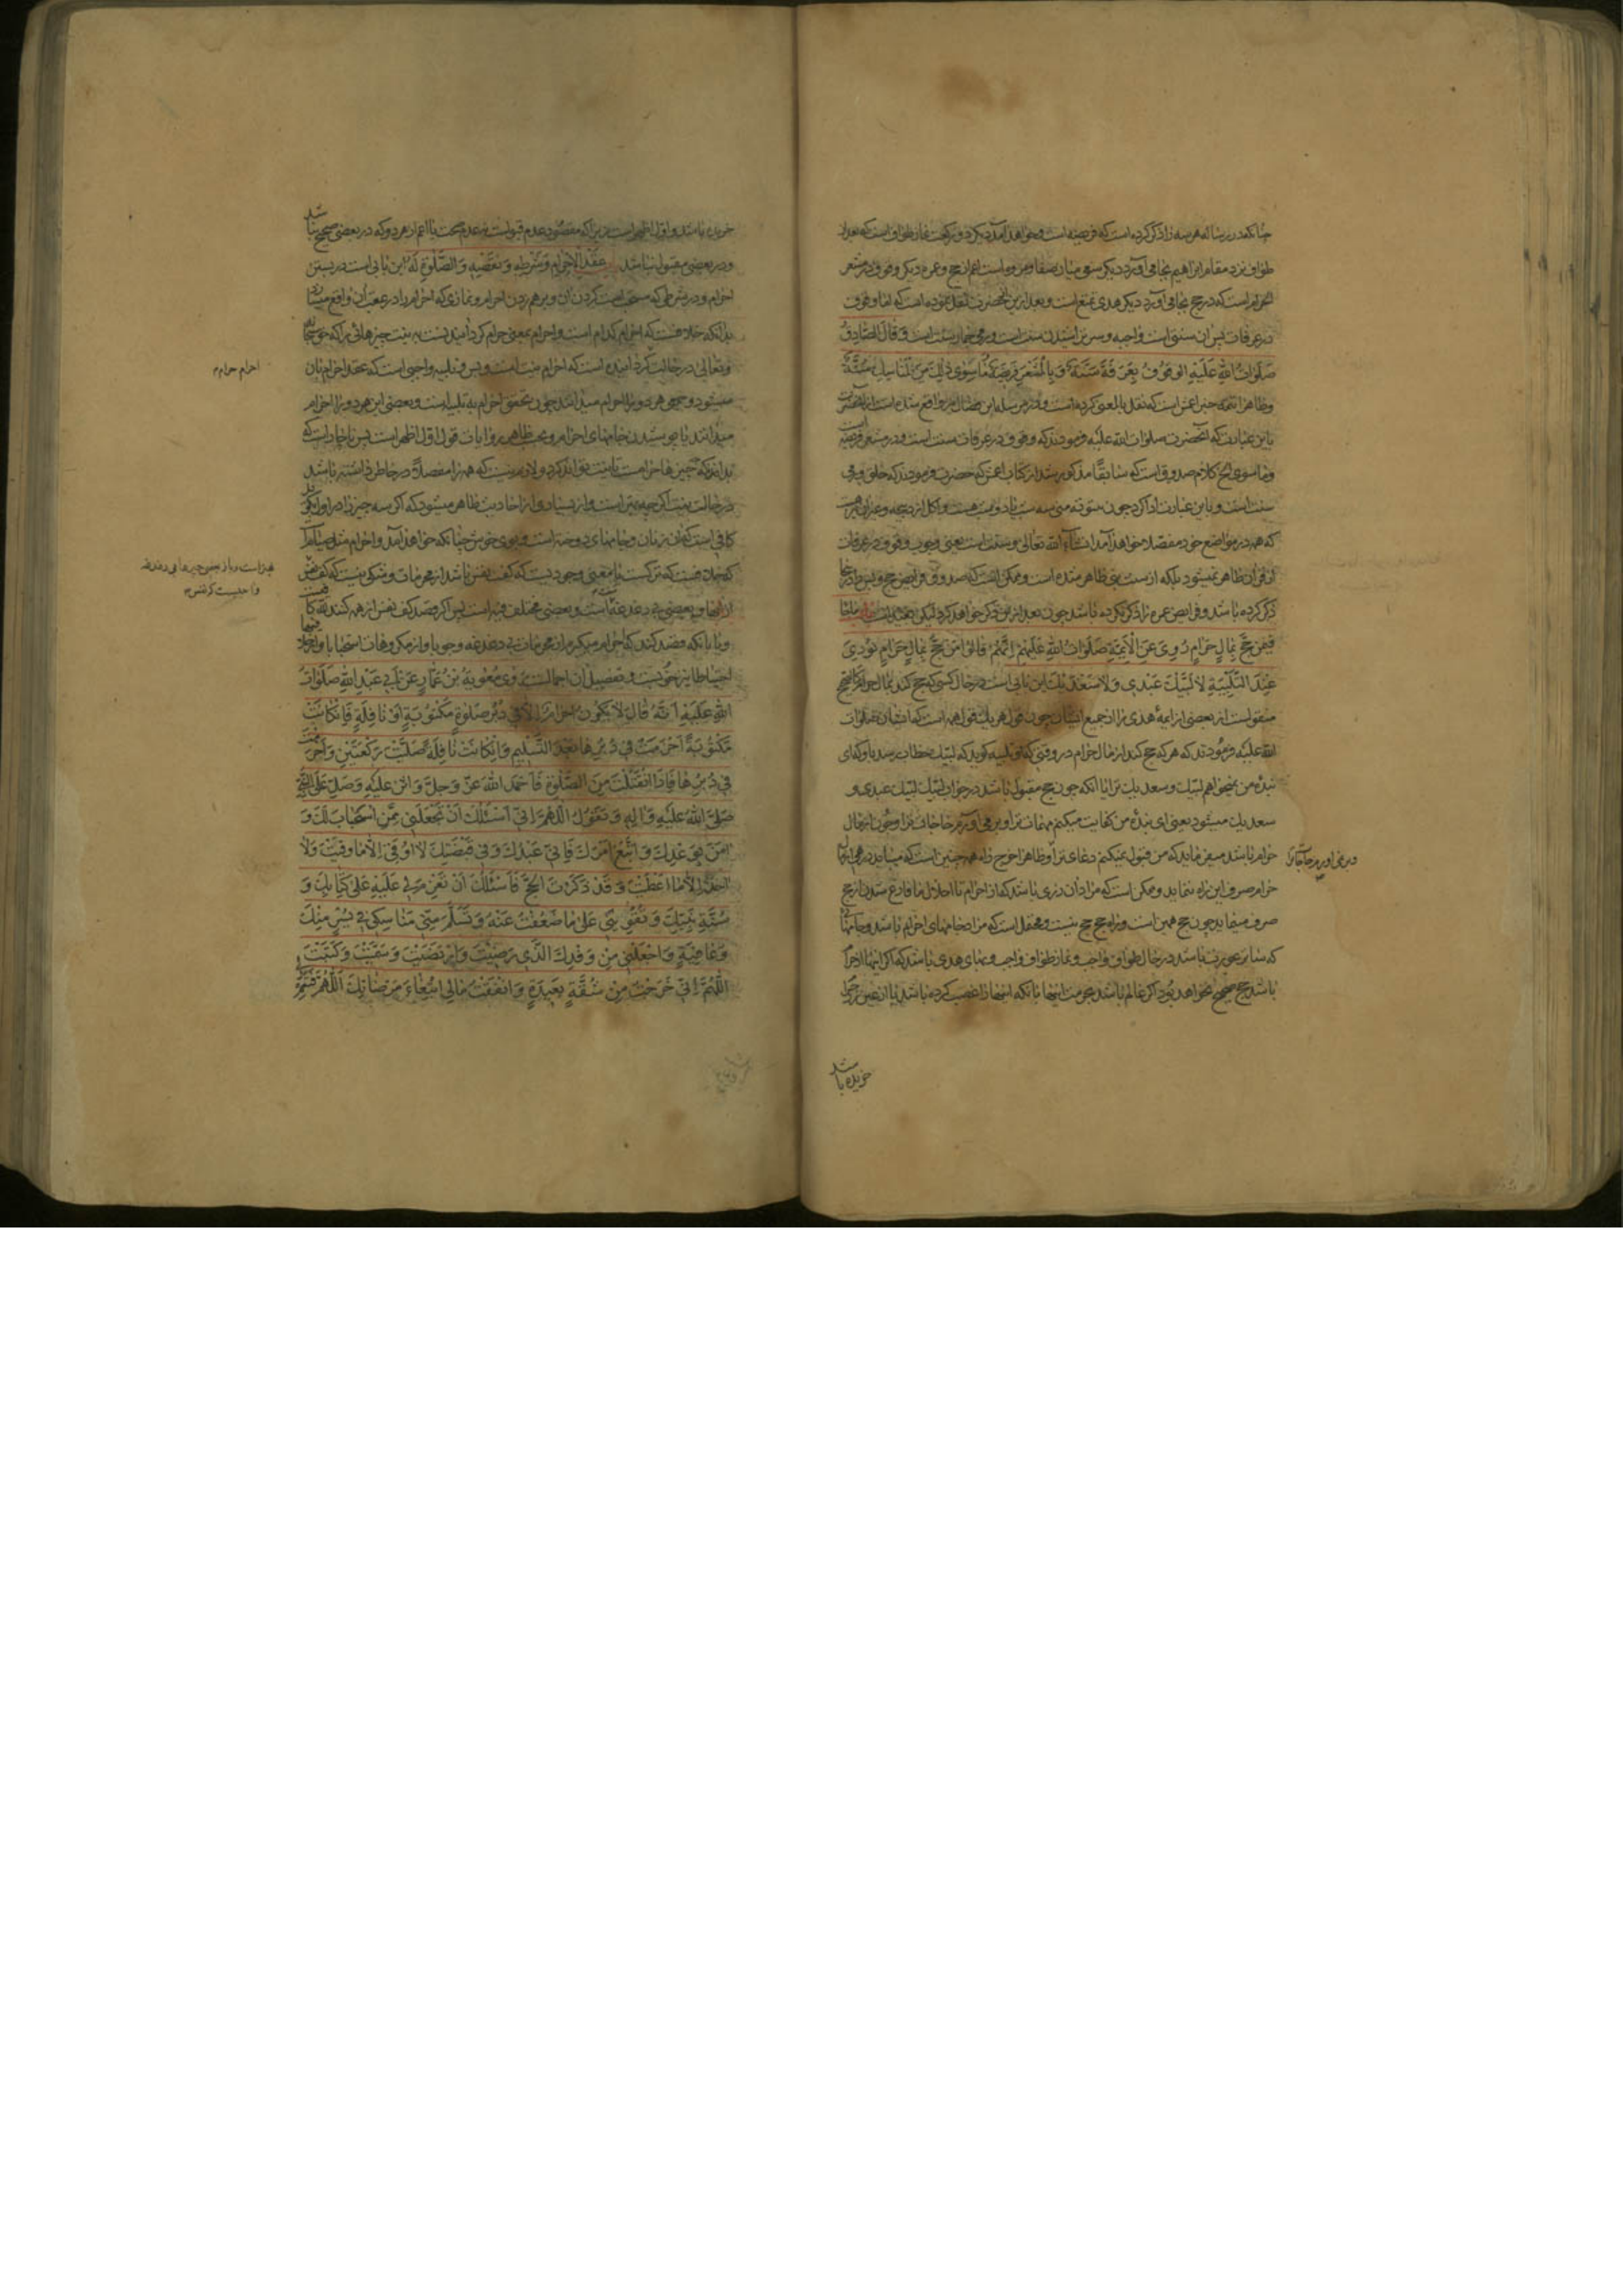 چنانکه در رساله هر سه را ذکر کرده است که فریضه است و خواهد آمد دیگر دو رکعت نماز طواف است که بعد از
طواف نزد مقام ابراهیم بجا می آورد دیگر سعی میان صفا و مروه است اعم از حج و عمره دیگر وقوف در مشعر
الحرام است که در حج بجا می آورد دیگر هدی تمتع است و بعد از این آنحضرت نقل نموده است که اما وقوف
در عرفات پس آن سنتی است واجبه و سر تراشیدن سنت است و رمی جمار سنت است و قال الصادق
صلوات الله علیه الوقوف بعرفة سنة و بالمشعر فریضة و ما سوی ذلک من المناسک سنة
و ظاهرا تتمه خبر اعمش است که نقل بالمعنی کرده است و در مرسله ابن فضال نیز واقع شده است از آنحضرت
باین عبارت که آنحضرت صلوات الله علیه فرمودند که وقوف در عرفات سنت است و در مشعر فریضه است
و ما سوی الخ کلام صدوق است که سابقا مذکور شد از کتاب اعمش که حضرت فرمودند که حلق و رمی
سنت است و باین عبارت ادا کرد چون
که همه در مواضع خود مفصلا خواهد آمد ان شاء الله تعالی و سنت است یعنی وجوب وقوف در عرفات
از قرآن ظاهر نمیشود بلکه از سنت نبی ظاهر شده است و ممکن است که صدوق فرایض حج و بس را در اینجا
ذکر کرده باشد و فرایض عمره را ذکر نکرده باشد چون بعد ازین ذکر خواهد کرد لیکن بعید است باب ما جاء
فیمن حج بمال حرام روی عن الائمة صلوات الله علیهم انهم قالوا من حج بمال حرام نودی
عند التلبیة لا لبیک عبدی و لا سعدیک این بابی است در حال کسی که حج کند بمال حرام
منقولست از بعضی از ایمهٔ هدی یا از جمیع ایشان چون قول هر یک قول همه است که ایشان صلوات
الله علیه فرمودند که هر که حج کند از مال حرام در وقتی که او تلبیه گوید که لبیک خطاب رسد باو که ای
بندهٔ من نمیخواهم لبیک و سعدیک ترا یا آنکه چون حج مقبول باشد در جواب لبیک لبیک عبدی و
سعدیک میشود یعنی ای بندهٔ من کفایت میکنم مهمات ترا و بر می آورم حاجات ترا و چون از مال
حرام باشد میفرماید که من قبول نمیکنم دعای ترا و ظاهرا خرج راه همه چنین است که میباید
و بر نمی آورم حاجات ترا
حرام صرف این راه ننماید و ممکن است که مراد آن زری باشد که از احرام تا احلال یا فارغ شدن از حج
صرف مینماید چون حج همین است و راه حج حج نیست و محتمل است که مراد جامهای احرام باشد و جامهای
که ساتر عورت باشد در حال طواف واجب و نماز طواف واجب و بهای هدی باشد که اگر اینها از حرام
باشد حج صحیح نخواهد بود اگر عالم باشد بحرمت اینها یا آنکه اینها را غصب کرده باشد یا از عین زر حرام
خریده باشد
خریده باشد و اول اظهر است زیرا که مقصود عدم قبول است نه عدم صحت یا اعم از هر دو که در بعضی صحیح نباشد
و در بعضی مقبول نباشد عقد الاحرام و شرطه و نقضه و الصلوة له این بابی است در بستن
احرام و در شرطی که مستحب است کردن آن و برهم زدن احرام و نمازی که احرام را در عقب آن واقع میسازد
بدانکه خلافست که احرام کدام است و احرام بمعنی حرام گردانیدنست به نیت چیزهائی را که حق سبحانه
و تعالی در حالت گردانیده است که احرام نیت است و بس و تلبیه واجبی است که عقد احرام بآن
احرام حرام
میشود و جمعی هر دو را احرام میدانند چون تحقق احرام به تلبیه است و بعضی این هر دو را احرام
میدانند با پوشیدن جامهای احرام و بحسب ظاهر روایات قول اول اظهر است پس ناچار است که
بداند که چه چیزها حرامست تا نیت تواند کرد و لازم نیست که همه را مفصلا در خاطر داشته باشد
در حالت نیت اگر چه بهتر است و از بسیاری از احادیث ظاهر میشود که اگر سه چیز را در اول بگوید
کافی است که آن زنان و جامهای دوخته است و بوی خوش چنانکه خواهد آمد و احرام مثل صیام
که خلافست که ترکست یا معنی وجودیست که کف نفس باشد از محرمات و شکی نیست که کف نفس
از بعضی بی دغدغه است و بعضی مختلف فیه است پس اگر قصد کف نفس از همه کنند بلکه
و یا بآنکه قصد کند که احرام میگیرم از محرمات بی دغدغه وجوبا و از مکروهات استحبابا و
احتیاطا نیز خوبست و تفصیل آن اجمالست روی معویة بن عمار عن ابی عبد الله صلوات
الله علیه انه قال لا یکون احرام الا فی دبر صلوة مکتوبة او نافلة فان کانت
مکتوبة احرمت فی دبرها بعد التسلیم و ان کانت نافلة صلیت رکعتین و احرمت
فی دبرها فاذا انفتلت من الصلوة فاحمد الله عز و جل و اثن علیه و صل علی النبی
صلی الله علیه و آله و تقول اللهم انی اسئلک ان تجعلنی ممن استجاب لک و
امن بوعدک و اتبع امرک فانی عبدک و فی قبضتک لا اوقی الا ما وقیت و لا
اخذ الا ما اعطیت و قد ذکرت الحج فاسئلک ان تعزم لی علیه علی کتابک و
سنة نبیک و تقوینی علی ما ضعفت عنه و تسلم منی مناسکی فی یسر منک
و عافیة و اجعلنی من وفدک الذی رضیت و ارتضیت و سمیت و کتبت
اللهم انی خرجت من شقة بعیدة و انفقت مالی ابتغاء مرضاتک اللهم فتمم